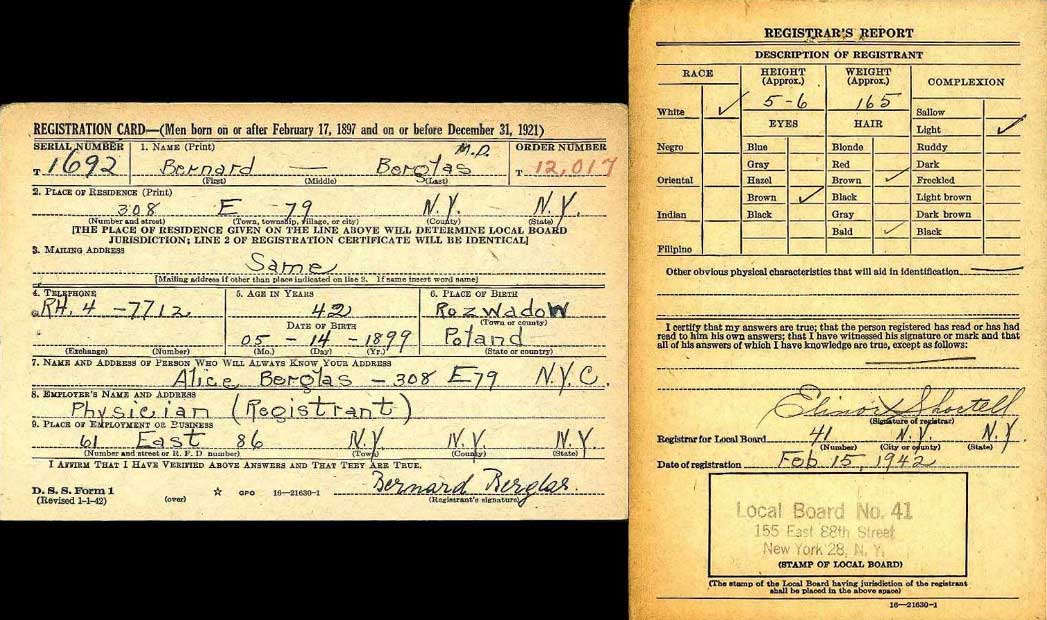 REGISTRATION CARD—(Men born on or after February 17, 1897 and on or before December 31, 1921)
SERIAL NUMBER 1. NAME (Print) ORDER NUMBER
M.D.
T 1692 Bernard — Berglas T 12,017
(First) (Middle) (Last)
2. PLACE OF RESIDENCE (Print)
308 E 79 N.Y. N.Y.
(Number and street) (Town, township, village, or city) (County) (State)
[THE PLACE OF RESIDENCE GIVEN ON THE LINE ABOVE WILL DETERMINE LOCAL BOARD
JURISDICTION; LINE 2 OF REGISTRATION CERTIFICATE WILL BE IDENTICAL]
3. MAILING ADDRESS
Same
[Mailing address if other than place indicated on line 2. If same insert word same]
4. TELEPHONE 5. AGE IN YEARS 6. PLACE OF BIRTH
RH. 4 -7712 42 Rozwadow
(Town or county)
DATE OF BIRTH
05 - 14 - 1899 Poland
(Exchange) (Number) (Mo.) (Day) (Yr.) (State or country)
7. NAME AND ADDRESS OF PERSON WHO WILL ALWAYS KNOW YOUR ADDRESS
Alice Berglas - 308 E 79 N.Y.C.
8. EMPLOYER'S NAME AND ADDRESS
Physician (Registrant)
9. PLACE OF EMPLOYMENT OR BUSINESS
61 East 86 N.Y. N.Y. N.Y.
(Number and street or R. F. D. number) (Town) (County) (State)
I AFFIRM THAT I HAVE VERIFIED ABOVE ANSWERS AND THAT THEY ARE TRUE.
Bernard Berglas.
D. S. S. Form 1
(Revised 1-1-42) (over) ☆ GPO 16—21630-1 (Registrant's signature)
REGISTRAR'S REPORT
DESCRIPTION OF REGISTRANT
RACE HEIGHT (Approx.) WEIGHT (Approx.) COMPLEXION
White ✓ 5-6 165 Sallow
EYES HAIR Light ✓
Negro Blue Blonde Ruddy
Gray Red Dark
Oriental Hazel Brown ✓ Freckled
Brown ✓ Black Light brown
Indian Black Gray Dark brown
Bald ✓ Black
Filipino
Other obvious physical characteristics that will aid in identification
I certify that my answers are true; that the person registered has read or has had
read to him his own answers; that I have witnessed his signature or mark and that
all of his answers of which I have knowledge are true, except as follows:
Elinor Shortell
(Signature of registrar)
Registrar for Local Board 41 N.Y. N.Y.
(Number) (City or county) (State)
Date of registration Feb 15, 1942
Local Board No. 41
155 East 88th Street
New York 28, N. Y.
(STAMP OF LOCAL BOARD)
(The stamp of the Local Board having jurisdiction of the registrant
shall be placed in the above space)
16—21630-1